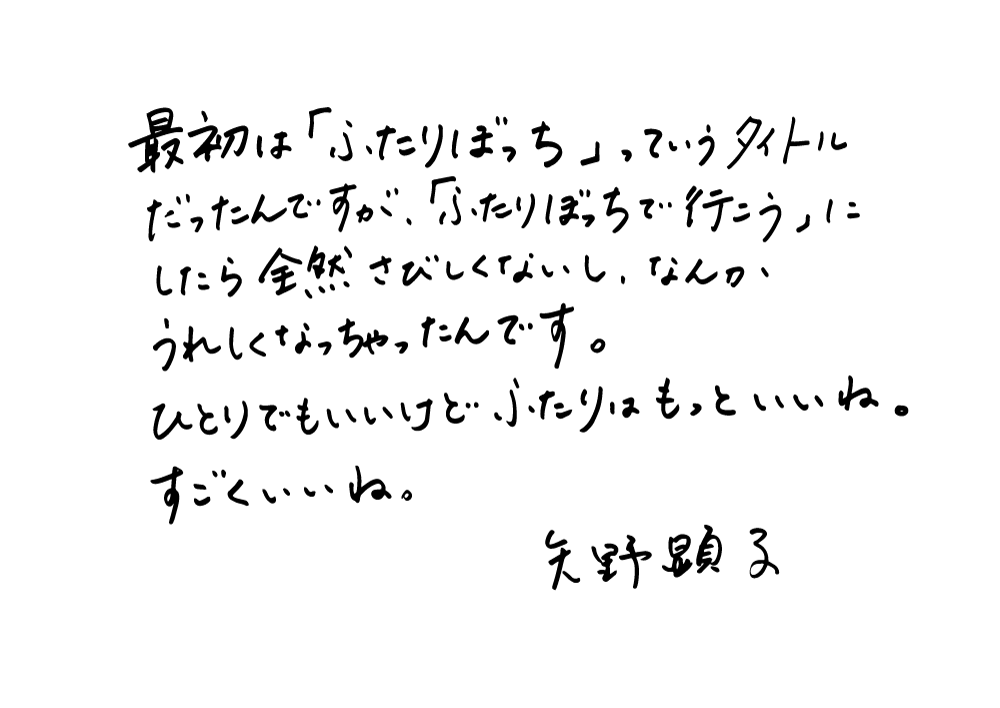 最初は「ふたりぼっち」っていうタイトル
だったんですが、「ふたりぼっちで行こう」に
したら全然さびしくないし、なんか、
うれしくなっちゃったんです。
ひとりでもいいけど ふたりはもっといいね。
すごくいいね。
矢野顕子